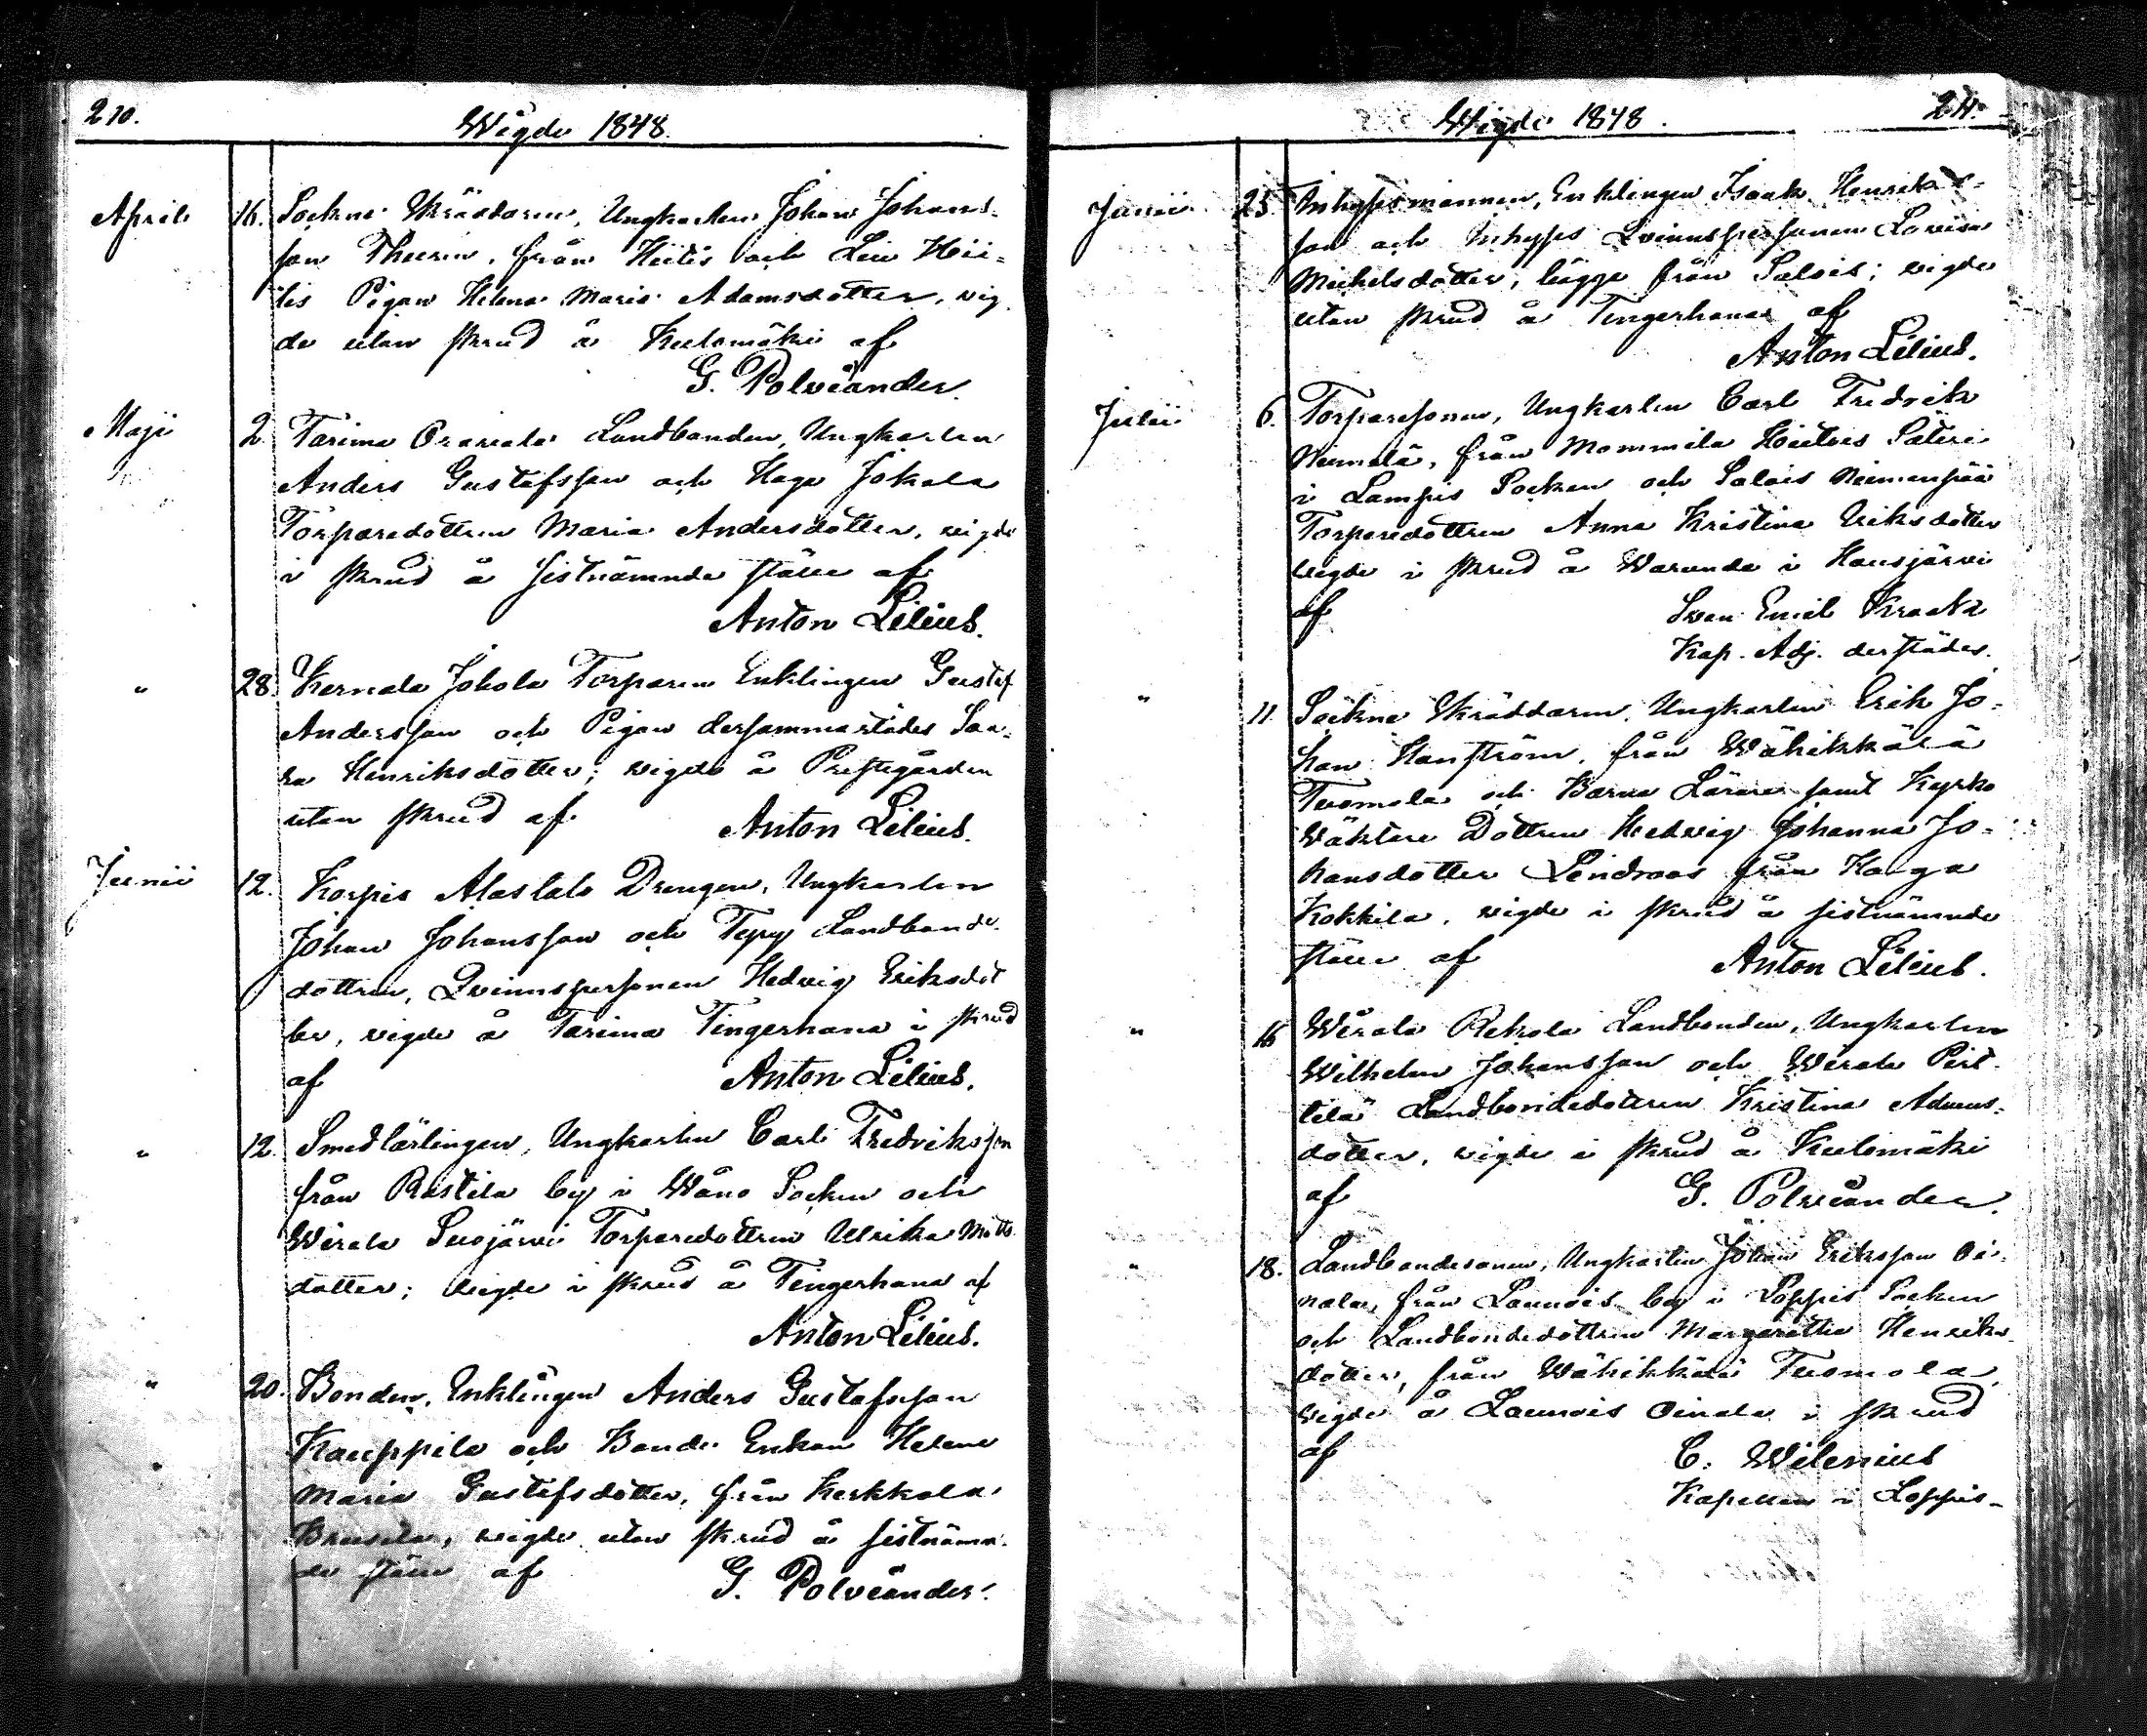 210.
Wigde 1848.
April 16. Sockne Skräddaren, Ungkarlen Johan Johans-
son Theren, från Hiitis och Lin Hii-
tis Pigan Helena Maria Adamsdotter, vig-
de utan skrud å Kulomäki af
G. Polviander.
Maji 2. Tarima Oravala Landbonden, Ungkarlen
Anders Gustafsson och Haga Jokala
Torparedottren Maria Andersdotter, vigde
i skrud å sistnämnde ställe af
Anton Lilius.
" 28. Kernala Jokola Torparen Enklingen Gustaf
Andersson och Pigan dersammastädes Saa-
ra Henriksdotter; vigde å Prestegården
utan skrud af Anton Lilius.
Junii 12. Korpis Alastalo Drengen, Ungkarlen
Johan Johansson och Tepy Landbonde-
dottren, Qvinnspersonen Hedvig Eriksdot
ter, vigde å Tarima Tingerhana i skrud
af Anton Lilius.
" 12. Smedlärlingen, Ungkarlen Carl Fredriksson
från Rastila by i Wåno Socken och
Wirala Suojärvi Torparedottren Ulrika Matts
dotter; vigde i skrud å Tingerhana af
Anton Lilius.
" 20. Bonden, Enklingen Anders Gustafsson
Kauppila och Bonde Enkan Helena
Maria Gustafsdotter, från Kerkkola
Brusila, vigde utan skrud å sistnämn-
de ställe af G. Polviander.
Wigde 1848. 211.
Junii 25. Inhysesmannen, Enklingen Isaak Henriks-
son och Inhyses Qvinnspersonen Lovisa
Michelsdotter, bägge från Salois; vigde
utan skrud å Tingerhana af
Anton Lilius.
Julii 6. Torparesonen, Ungkarlen Carl Fredrik
Niemelä, från Mommila Hietois Säteri
i Lampis Socken och Salois Niemenpää
Torparedottren Anna Kristina Eriksdotter
vigde i skrud å Warunda i Hausjärvi
af Sven Emil Kraatz
Kap. Adj. derstädes.
" 11. Sockne Skräddaren, Ungkarlen Erik Jo-
han Hanström, från Wähikkälä
Tuomola och Barna Lärare samt Kyrko
Wäktare Dottren Hedvig Johanna Jo-
hansdotter Lindroos från Haga
Kokkila, vigde i skrud å sistnämnde
ställe af Anton Lilius.
" 16 Wirala Rekola Landbonden, Ungkarlen
Wilhelm Johansson och Wirala Pert-
tilä Landbondedottren Kristina Adams-
dotter, vigde i skrud å Kulomäki
af G. Polviander.
" 18. Landbondesonen, Ungkarlen Johan Eriksson Oi-
nala, från Launois by i Loppis Socken
och Landbondedottren Margaretha Henriks-
dotter, från Wähikkälä Tuomola,
vigde å Launois Oinala i skrud
af C. Wilenius
Kapellan i Loppis.